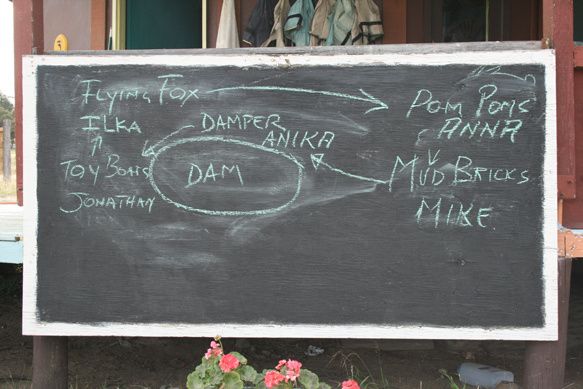 Flying Fox
ILKA
Toy Boats
JONATHAN
DAMPER
ANIKA
DAM
Pom Poms
ANNA
Mud Bricks
MIKE